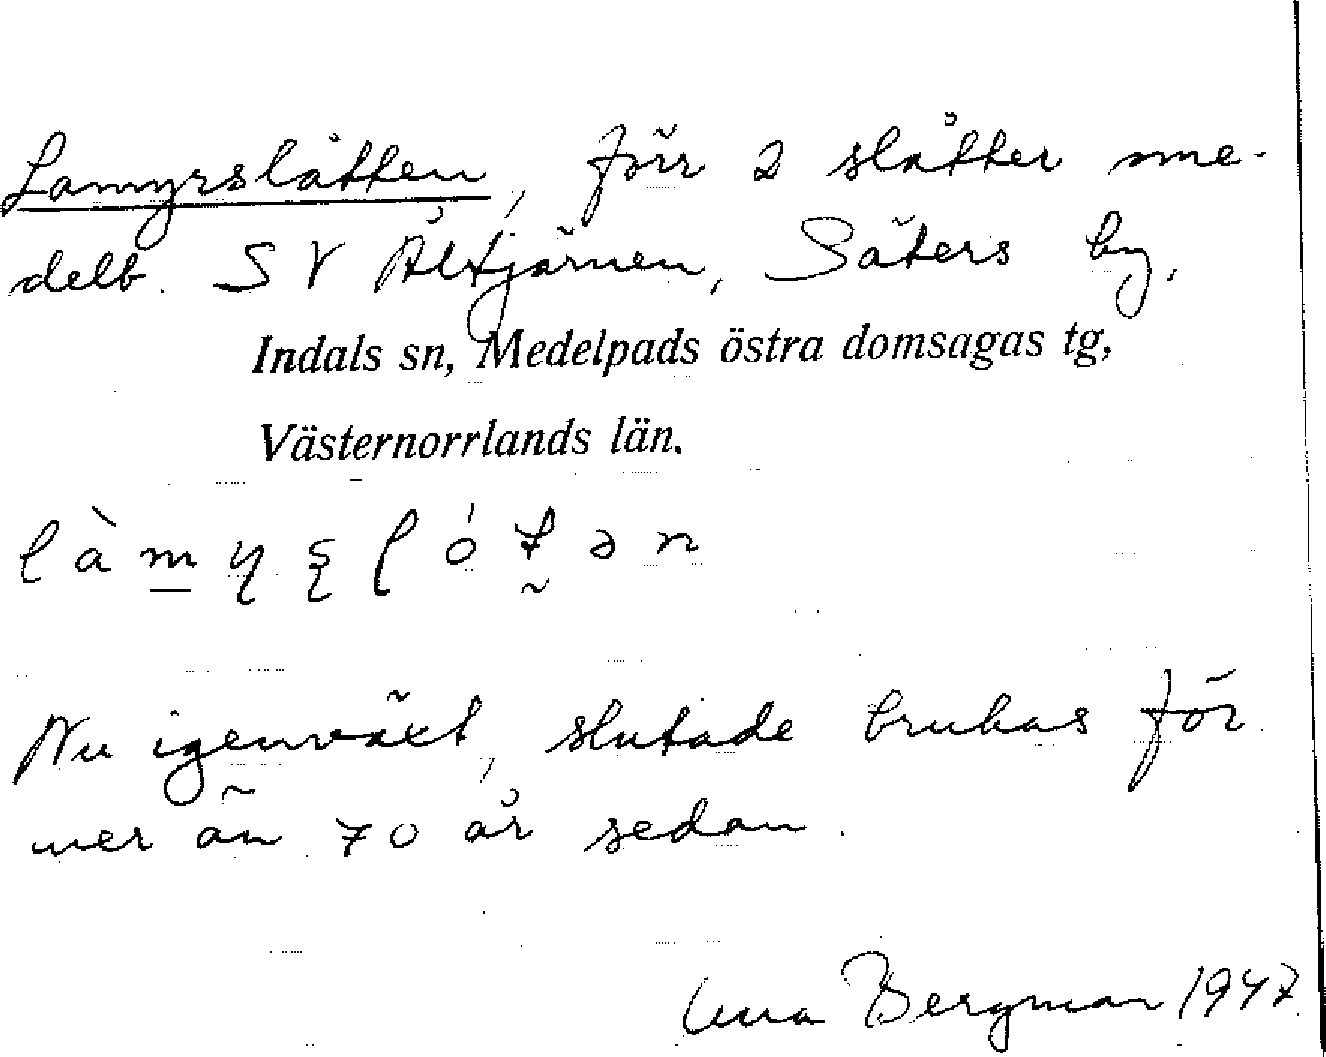 Lamyrslåtten, förr 2 slåtter ome-
delb. SV Åltjärnen, Säters by,
Indals sn, Medelpads östra domsagas tg,
Västernorrlands län.
Nu igenväxt, slutade brukas för
mer än 70 år sedan.
Bergman 1947